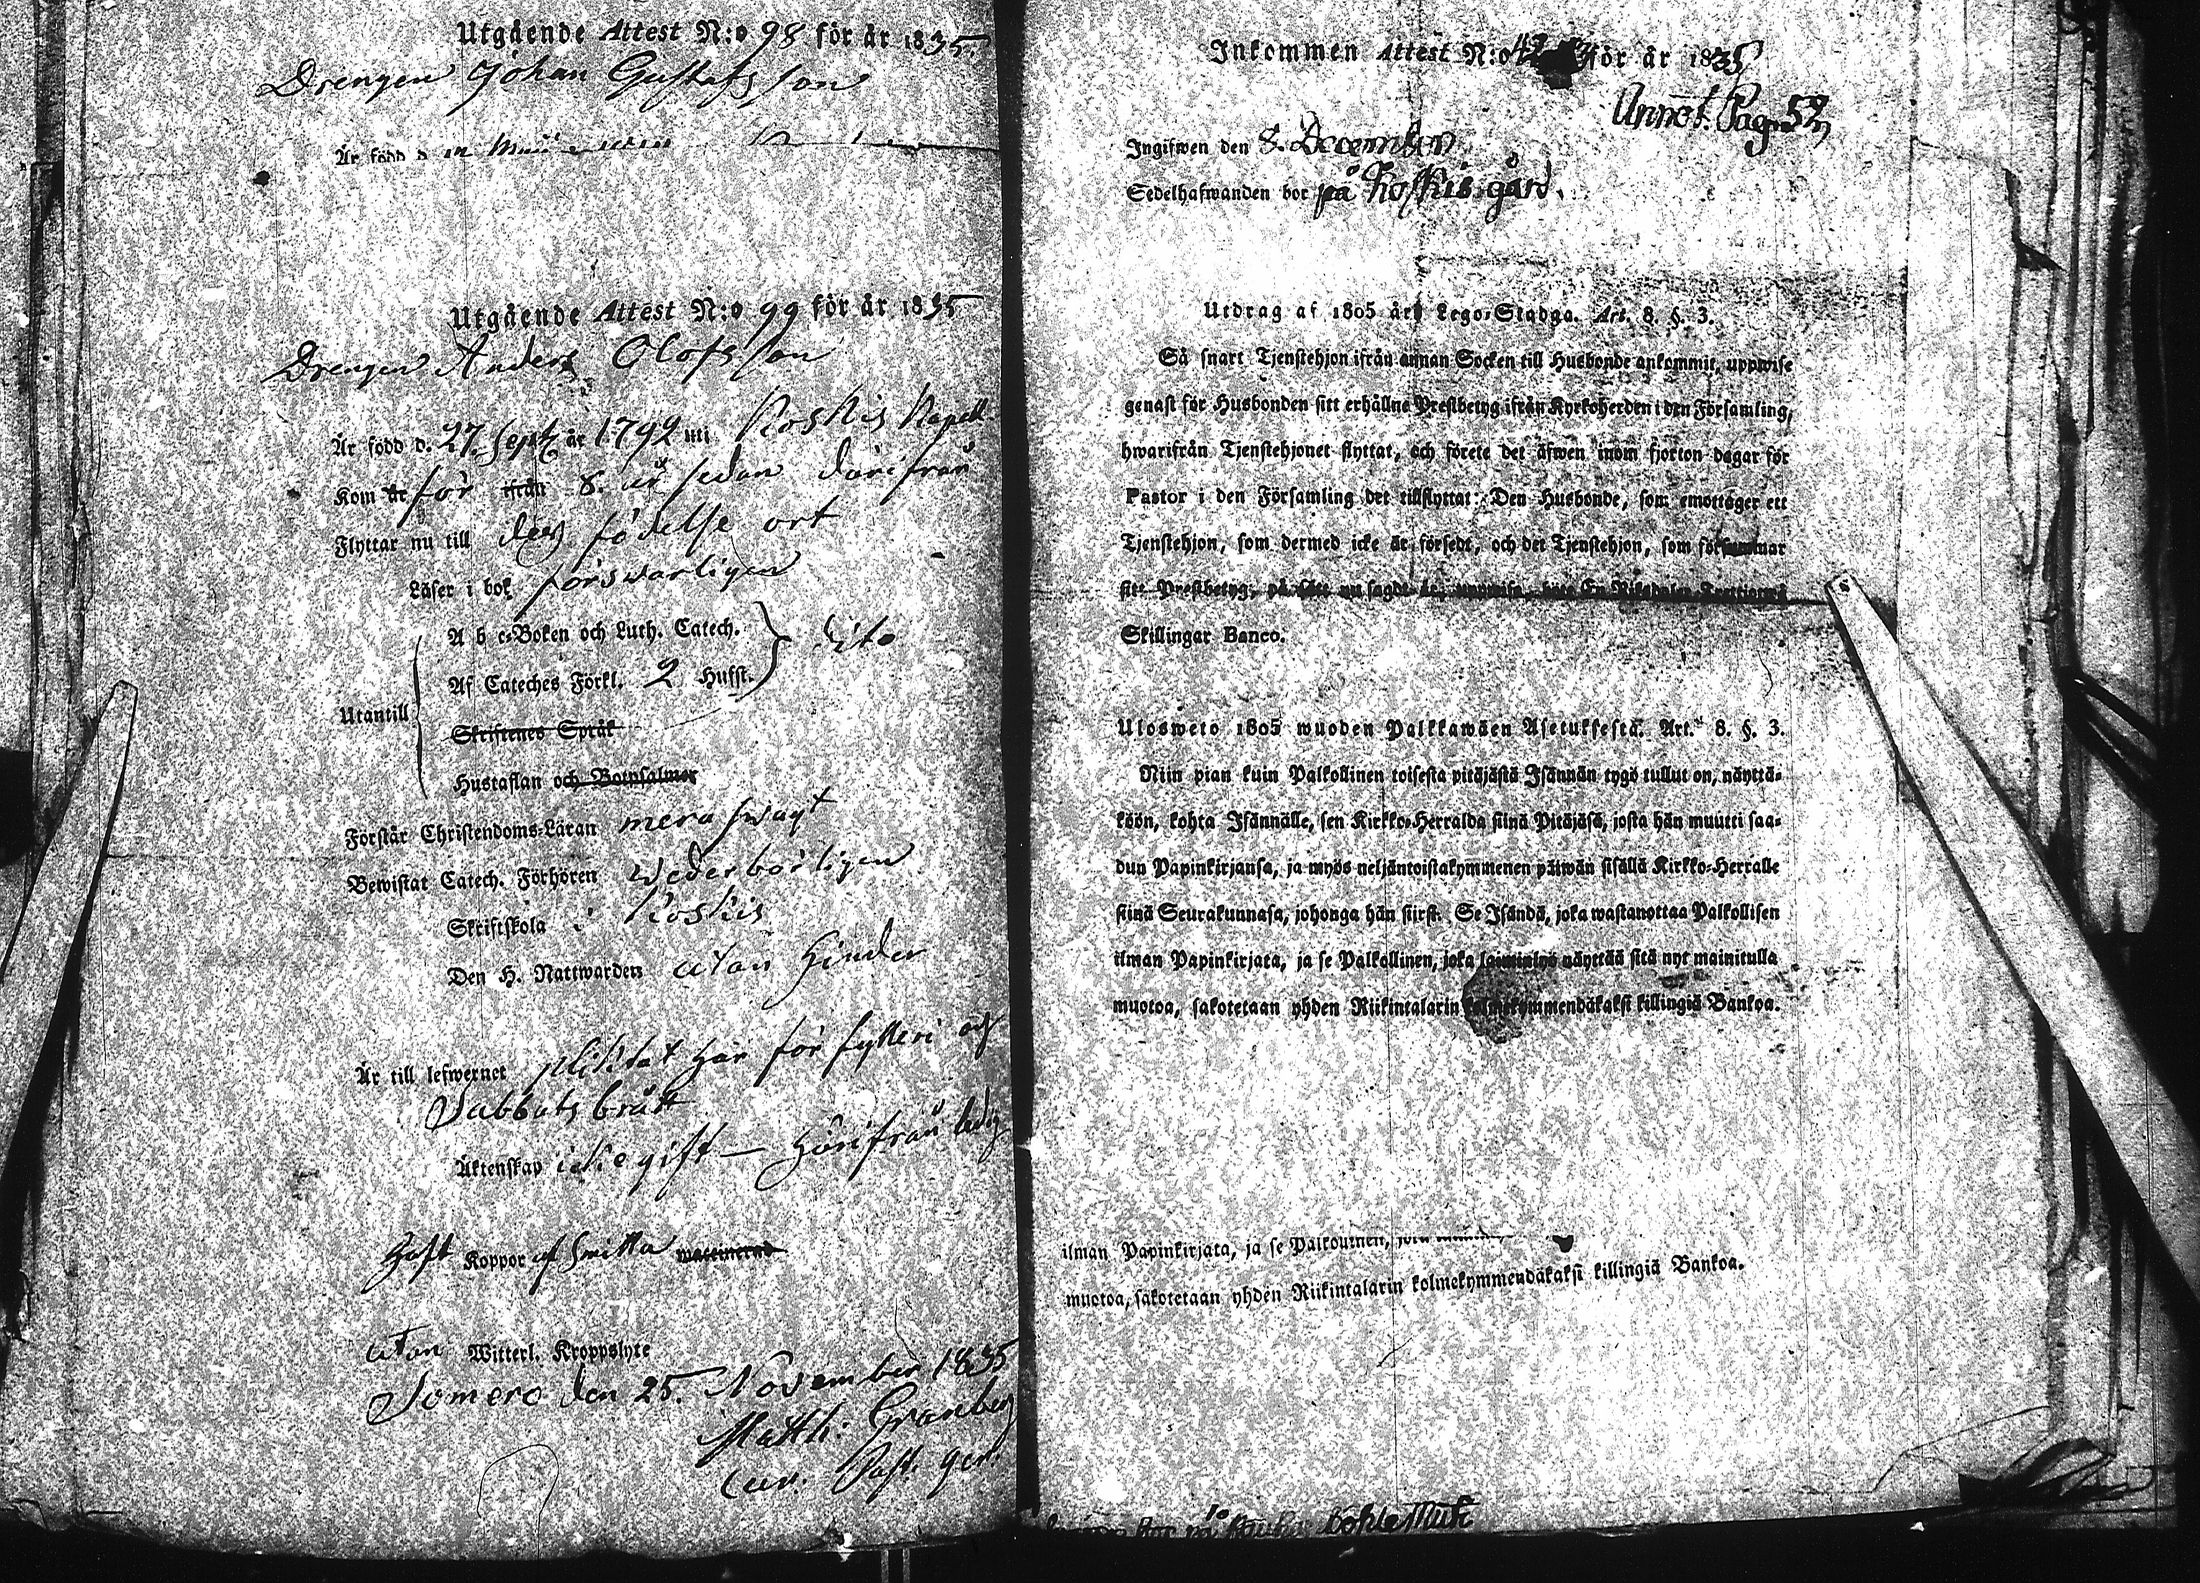 Utgående Attest N:o 98 för år 1835
Drengen Johan Gustafsson
Är född
Utgående Attest N:o 99 för år 1835
Drengen Anders Olofsson
Är född d. 27. Sept. år 1792 uti Koskis Kapell
Kom år för ifrån 8. år sedan därifrån
Flyttar nu till dess födelse ort
Läser i bok försvarligen
A b c-Boken och Luth. Catech. dito
Af Cateches Förkl. 2 Hufst.
Utantill
Skriftenes Språk
Hustaflan och Botpsalmer
Förstår Christendoms-Läran mera swagt
Bewistat Catech. Förhören wederbörligen
Skriftskola i Koskis
Den H. Nattwarden utan hinder
Är till lefwernet pliktat här för fylleri och
Sabbats brått
Äktenskap icke gift — härifrån ledig
Haft Koppor af smitta waccinerad
utan Witterl. Kroppslyte
Somero den 25. November 1835
Matth: Granberg
Past.
Inkommen Attest N:o 42 för år 1835
Annot. Pag. 52
Ingifwen den 8. December
Sedelhafwanden bor på Koskis gård.
Utdrag af 1805 års Lego-Stadga. Art. 8. §. 3.
Så snart Tjenstehjon ifrån annan Socken till Husbonde ankommit, uppwise
genast för Husbonden sitt erhållne Prestbetyg ifrån Kyrkoherden i den Församling,
hwarifrån Tjenstehjonet flyttat, och förete det äfwen inom fjorton dagar för
Pastor i den Församling det tillflyttat: Den Husbonde, som emottager ett
Tjenstehjon, som dermed icke är försedt, och det Tjenstehjon, som försummar
sitt Prestbetyg, på sätt nu sagdt är, uppwisa, böte En Riksdaler Trettiotwå
Skillingar Banco.
Ulosweto 1805 wuoden Palkkawäen Asetuksesta. Art. 8. §. 3.
Niin pian kuin Palkollinen toisesta pitäjästä Isännän tygö tullut on, näyttä-
köön, kohta Isännälle, sen Kirkko-Herralda siinä Pitäjäsä, josta hän muutti saa-
dun Papinkirjansa, ja myös neljäntoistakymmenen päiwän sisällä Kirkko-Herralle
siinä Seurakunnasa, johonga hän siirst. Se Isändä, joka wastanottaa Palkollisen
ilman Papinkirjata, ja se Palkollinen, joka laiminlyö näyttää sitä nyt mainitulla
muotoa, sakotetaan yhden Riikintalarin kolmekymmendäkaksi killingiä Bankoa.
ilman Papinkirjata, ja se Palkollinen, joka
muotoa, sakotetaan yhden Riikintalarin kolmekymmendäkaksi killingiä Bankoa.